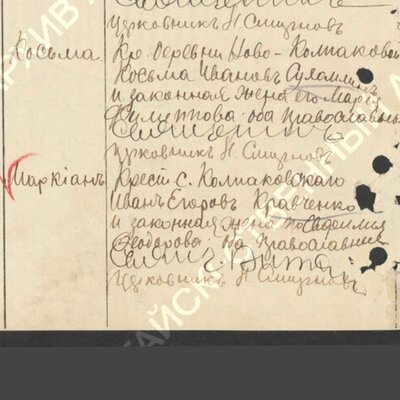 Церковникъ Н. Смирновъ
Косьма
Кр. деревни Ново-Колпаковой
Косьма Ивановъ
и законная жена его Марія
Филиппова оба православные
Священникъ
Церковникъ Н. Смирновъ
Маркіанъ
Крест с. Колпаковскаго
Иванъ Егоровъ Кравченко
и законная жена Евфимія
Феодорова, оба православные
Свящ. С.
Церковникъ Н. Смирновъ
АРХИВ